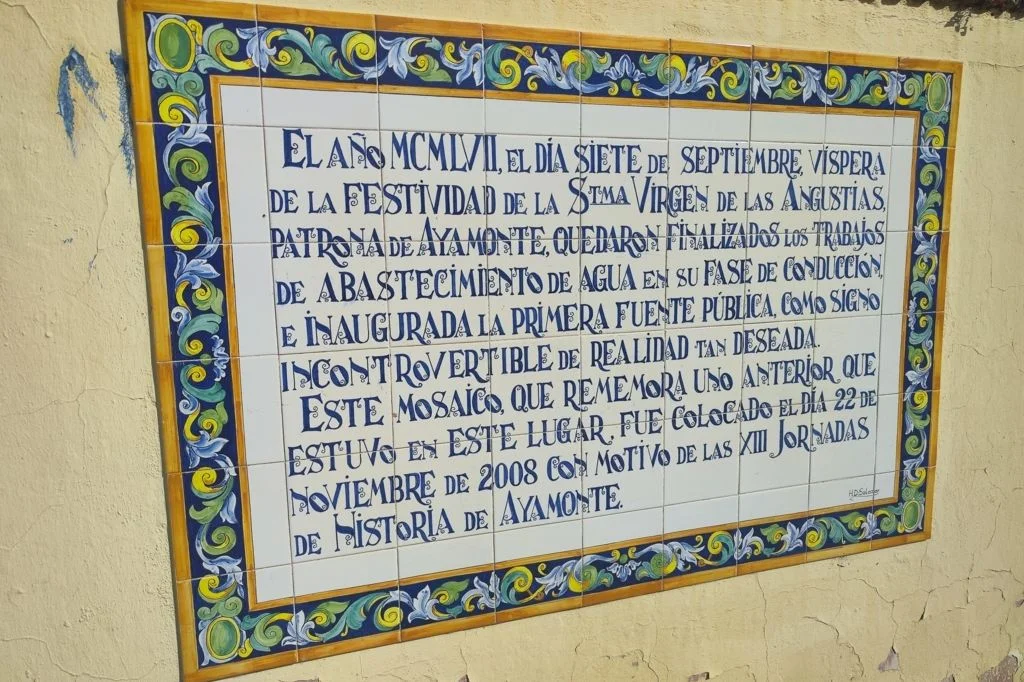 EL AÑO MCMLVII, EL DÍA SIETE DE SEPTIEMBRE, VÍSPERA
DE LA FESTIVIDAD DE LA STMA VIRGEN DE LAS ANGUSTIAS,
PATRONA DE AYAMONTE, QUEDARON FINALIZADOS LOS TRABAJOS
DE ABASTECIMIENTO DE AGUA EN SU FASE DE CONDUCCIÓN,
E INAUGURADA LA PRIMERA FUENTE PÚBLICA, COMO SIGNO
INCONTROVERTIBLE DE REALIDAD TAN DESEADA.
ESTE MOSAICO, QUE REMEMORA UNO ANTERIOR QUE
ESTUVO EN ESTE LUGAR, FUE COLOCADO EL DÍA 22 DE
NOVIEMBRE DE 2008 CON MOTIVO DE LAS XIII JORNADAS
DE HISTORIA DE AYAMONTE.